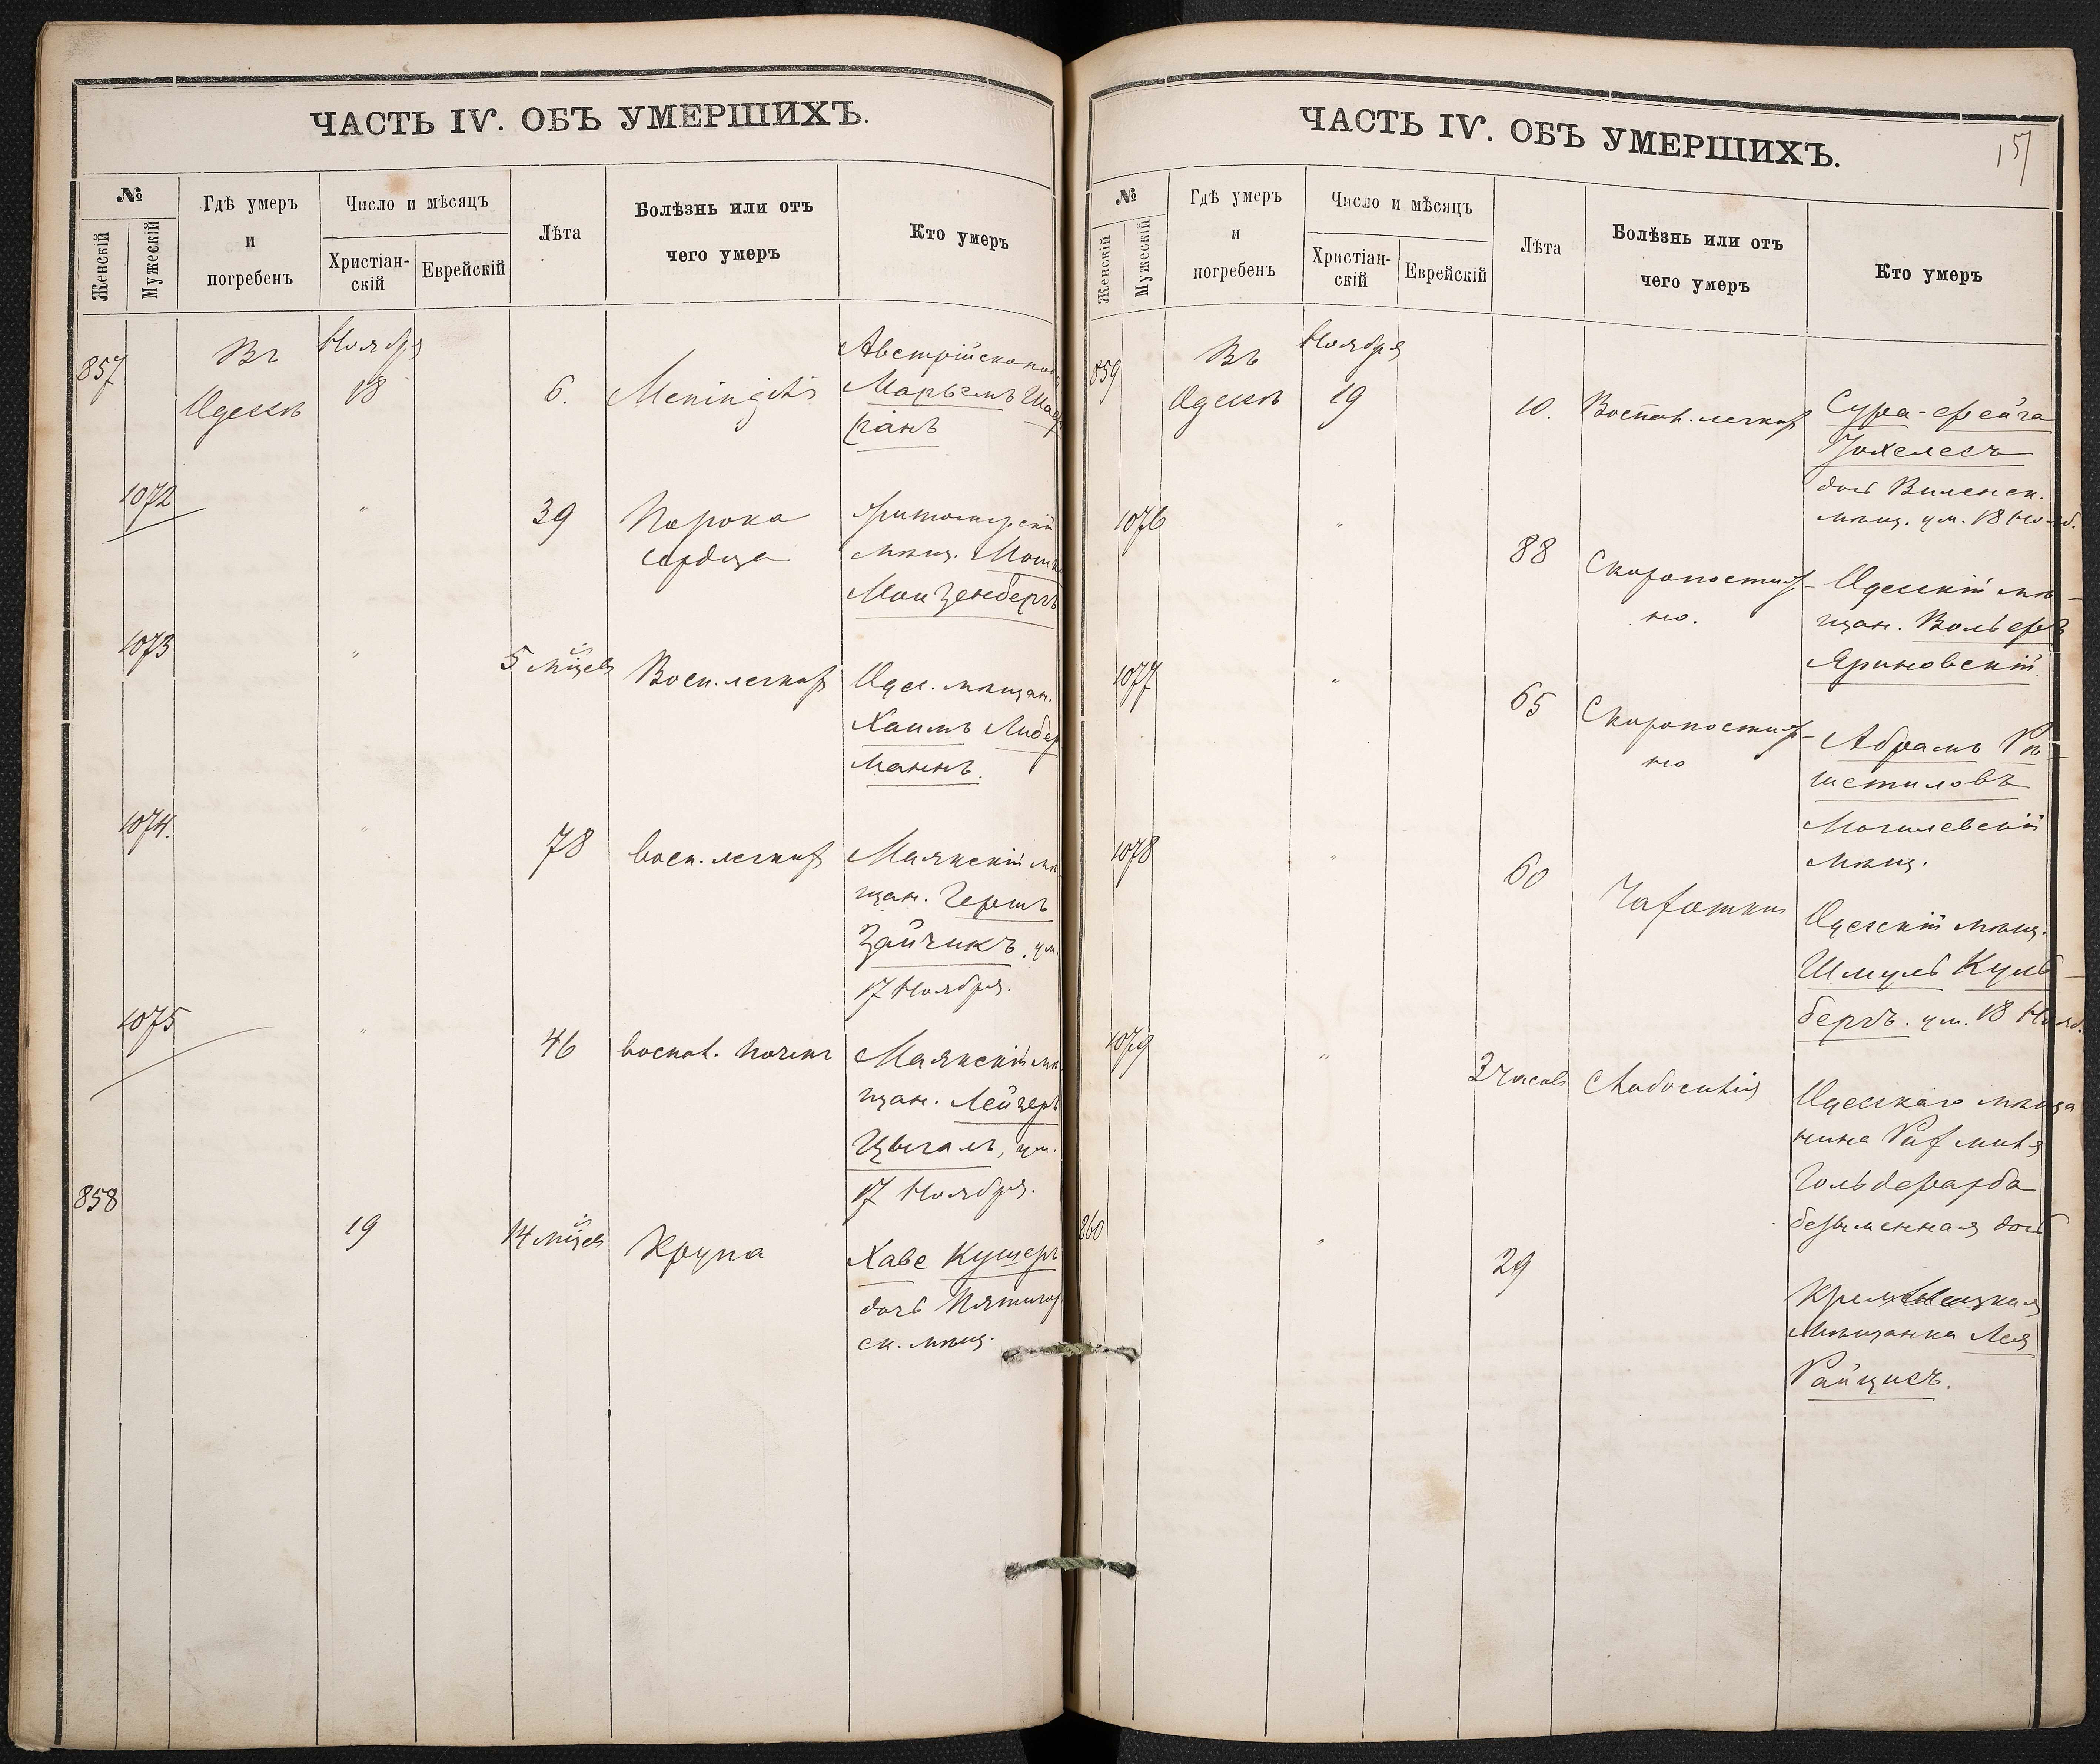 ЧАСТЬ IV. ОБЪ УМЕРШИХЪ.
№
Женскій
Мужескій
Гдѣ умеръ
и
погребенъ
Число и мѣсяцъ
Христіан-
скій
Еврейскій
Лѣта
Болѣзнь или отъ
чего умеръ
Кто умеръ
857
Въ
Одессѣ
Ноября
18
6.
Meningitis
Марьемъ
1072
"
39
Порока
сердца
Житомирскій
мѣщ.
Монзенбергъ
1073
"
5 мѣсцевъ
Восп. легких
Одес. мѣщан.
Хаимъ Либер
маннъ.
1074.
"
78
восп. легких
Маякскій мѣ
щан. Гершъ
Зайчикъ. ум.
17 Ноября.
1075
"
46
воспал. почек
Маякскій мѣ
щан. Лейзеръ
Цыгалъ, ум.
17 Ноября.
858
19
14 мѣсцевъ
Крупа
Хаве Кушеръ
дочь Пятигор
ск. мѣщ.
ЧАСТЬ IV. ОБЪ УМЕРШИХЪ.
157
№
Женскій
Мужескій
Гдѣ умеръ
и
погребенъ
Число и мѣсяцъ
Христіан-
скій
Еврейскій
Лѣта
Болѣзнь или отъ
чего умеръ
Кто умеръ
859
Въ
Одессѣ
Ноября
19
10.
Воспал. легких
Сура-фейга
Іохелесъ
дочь Виленск.
мѣщ. ум. 18 Нояб.
1076
"
88
Скоропостиж-
но.
Одесскій мѣ-
щан. Вольфъ
Яриновскій.
1077
"
65
Скоропостиж-
но
Абрамъ Рѣ-
шетиловъ
Могилевскій
мѣщ.
1078
"
60
Чахотки
Одесскій мѣщ.
Шмуль Куль-
бергъ. ум. 18 Нояб.
1079
"
3 часовъ
Слабосилія
Одесскаго мѣща
нина Рахмиля
Гольдфарба
безыменная дочь
860
"
29
мѣщанка Лея
Райцисъ.